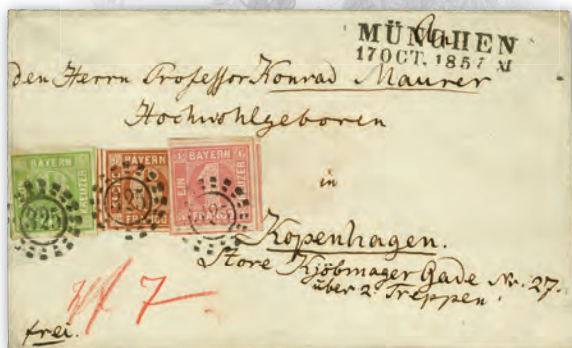 An
MÜNCHEN
17 OCT. 1857
den Herrn Professor Konrad Maurer
Hochwohlgeboren
BAYERN
KREUZER
325
BAYERN
FRANCO
325
BAYERN
EIN
KREUZER
FRANCO
325
in
Kopenhagen.
Store Kjöbmager Gade Nr. 27.
über 2 Treppen
7
frei.